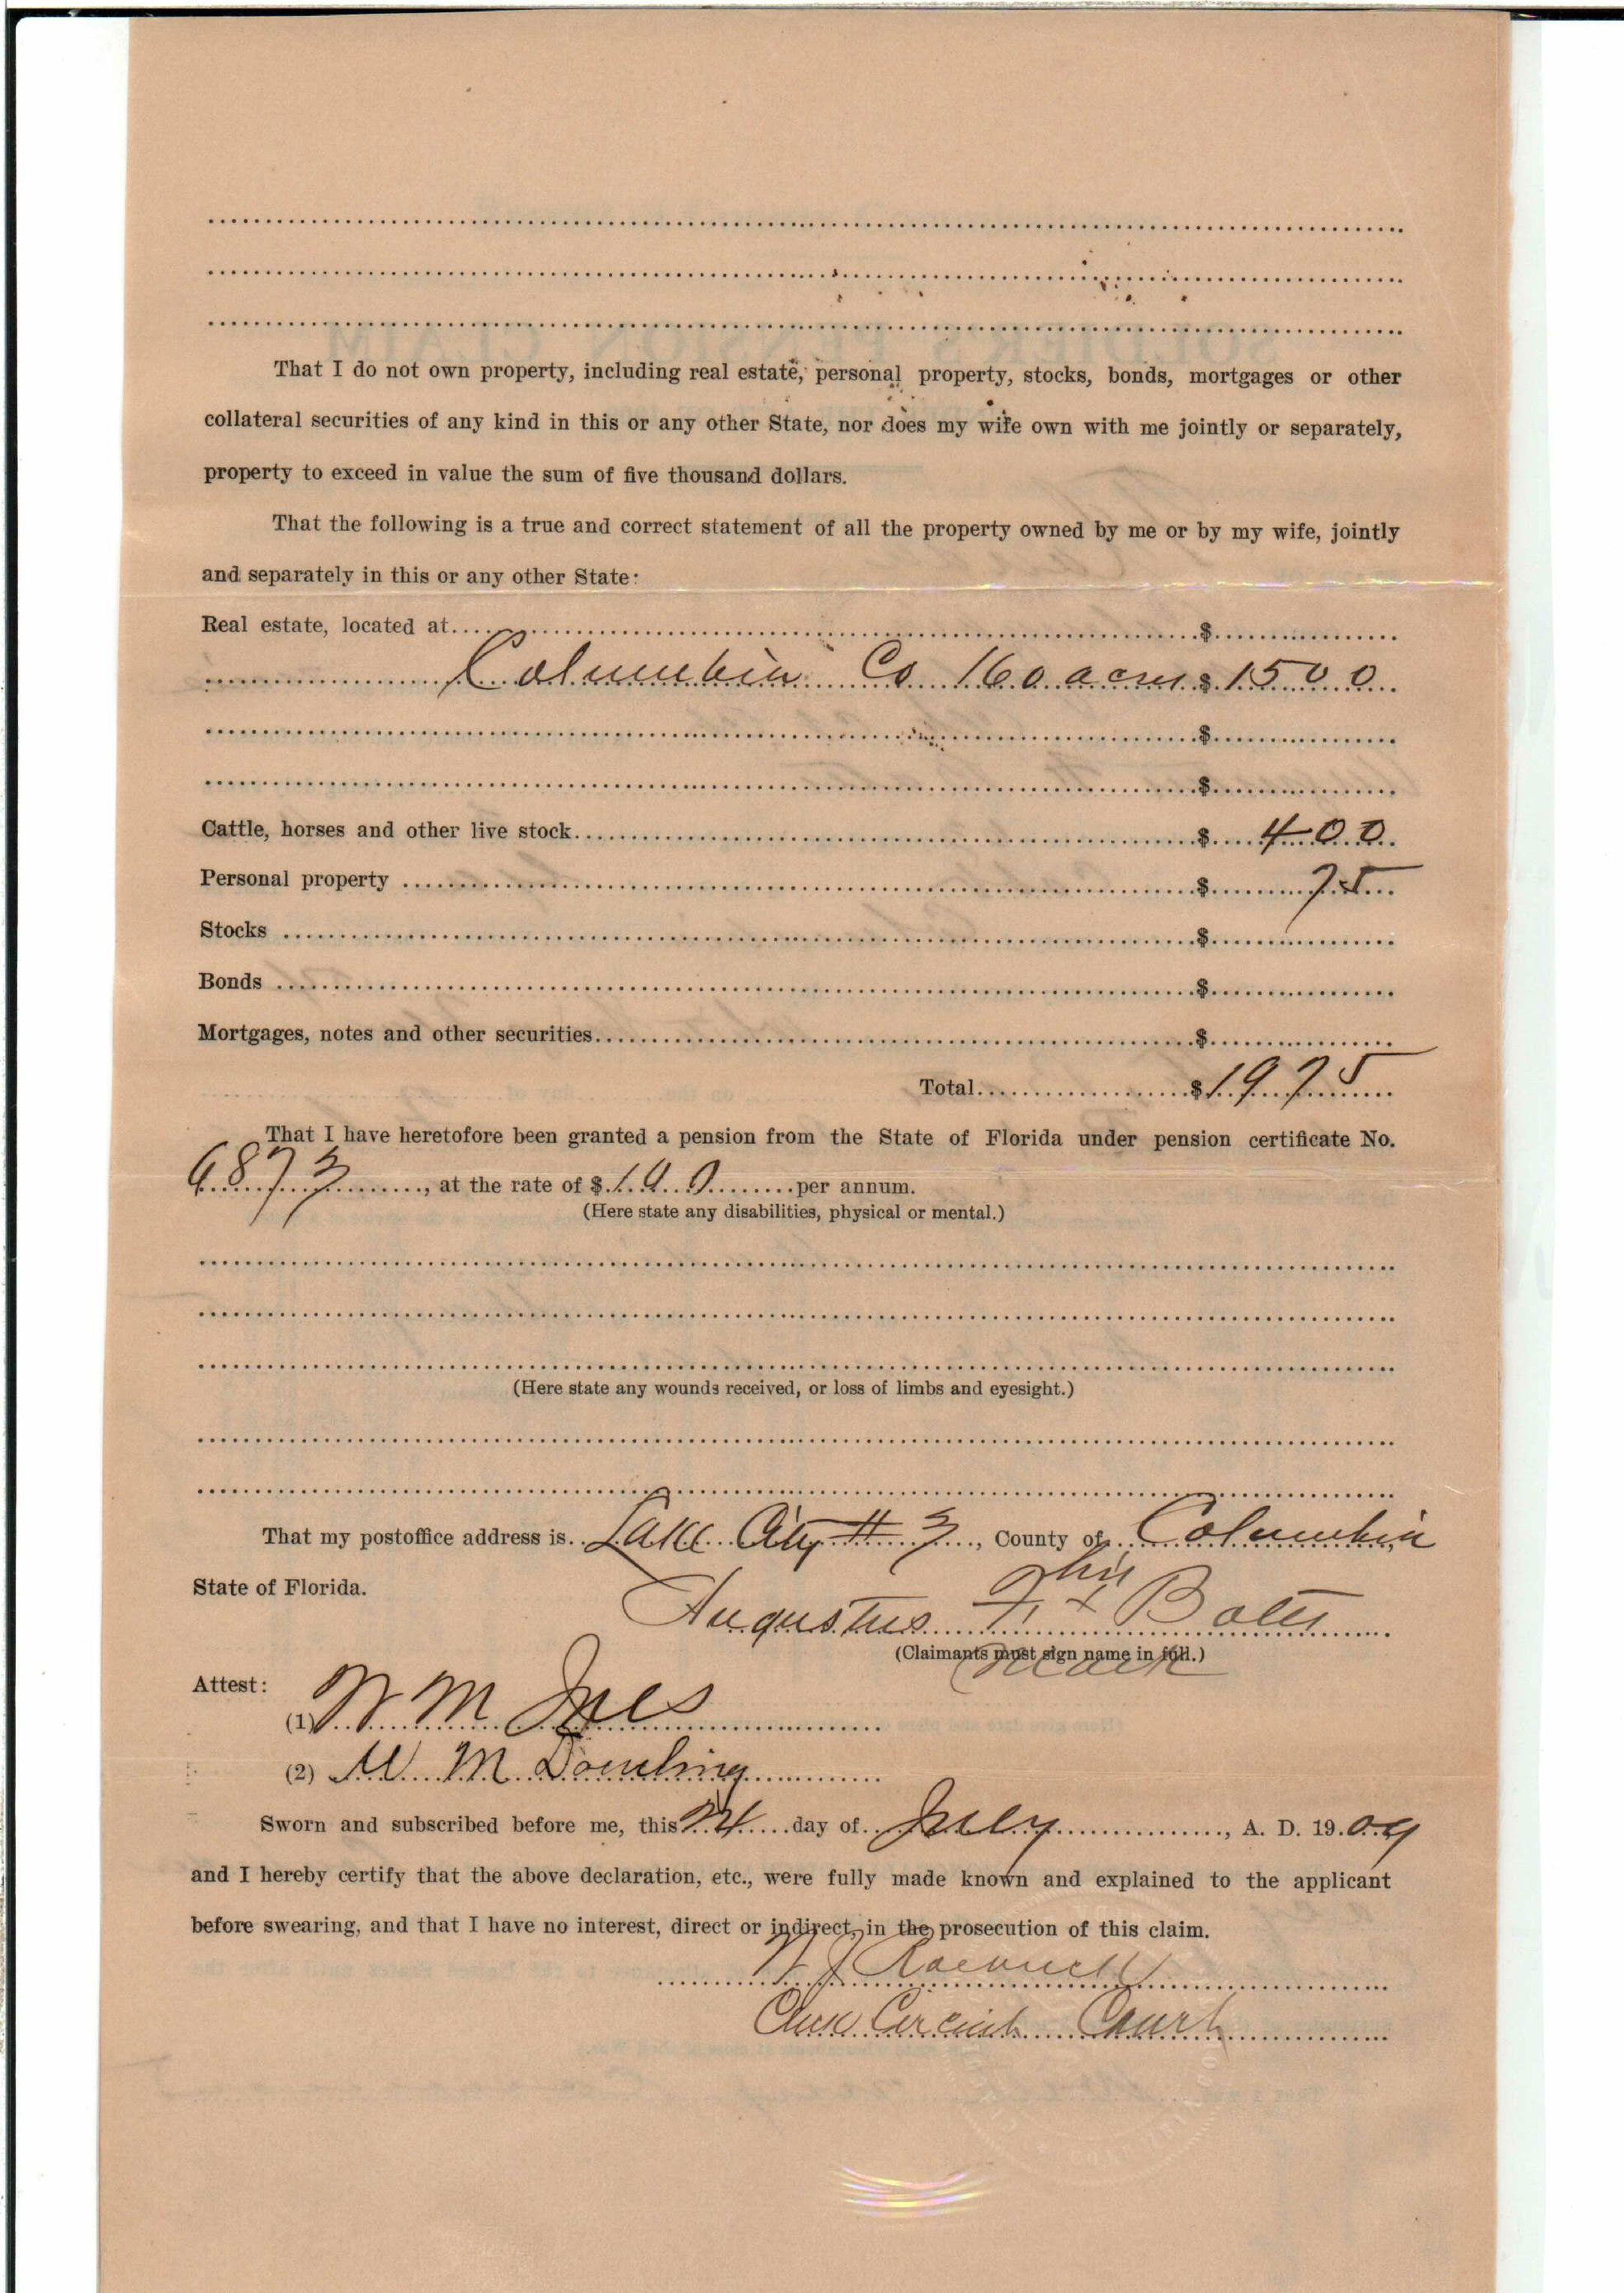 That I do not own property, including real estate, personal property, stocks, bonds, mortgages or other
collateral securities of any kind in this or any other State, nor does my wife own with me jointly or separately,
property to exceed in value the sum of five thousand dollars.
That the following is a true and correct statement of all the property owned by me or by my wife, jointly
and separately in this or any other State:
Real estate, located at $
Columbia Co 160 acres $ 1500
$
$
Cattle, horses and other live stock $ 400
Personal property $ 75
Stocks $
Bonds $
Mortgages, notes and other securities $
Total $ 1975
That I have heretofore been granted a pension from the State of Florida under pension certificate No.
6873, at the rate of $ 100 per annum.
(Here state any disabilities, physical or mental.)
(Here state any wounds received, or loss of limbs and eyesight.)
That my postoffice address is Lake City # 3, County of Columbia
State of Florida.
his
Augustus F. x Bates
(Claimants must sign name in full.)
mark
Attest:
(1) W M Ives
(2) W. M. Dowling
Sworn and subscribed before me, this 24 day of July, A. D. 1909
and I hereby certify that the above declaration, etc., were fully made known and explained to the applicant
before swearing, and that I have no interest, direct or indirect, in the prosecution of this claim.
Clerk Circuit Court